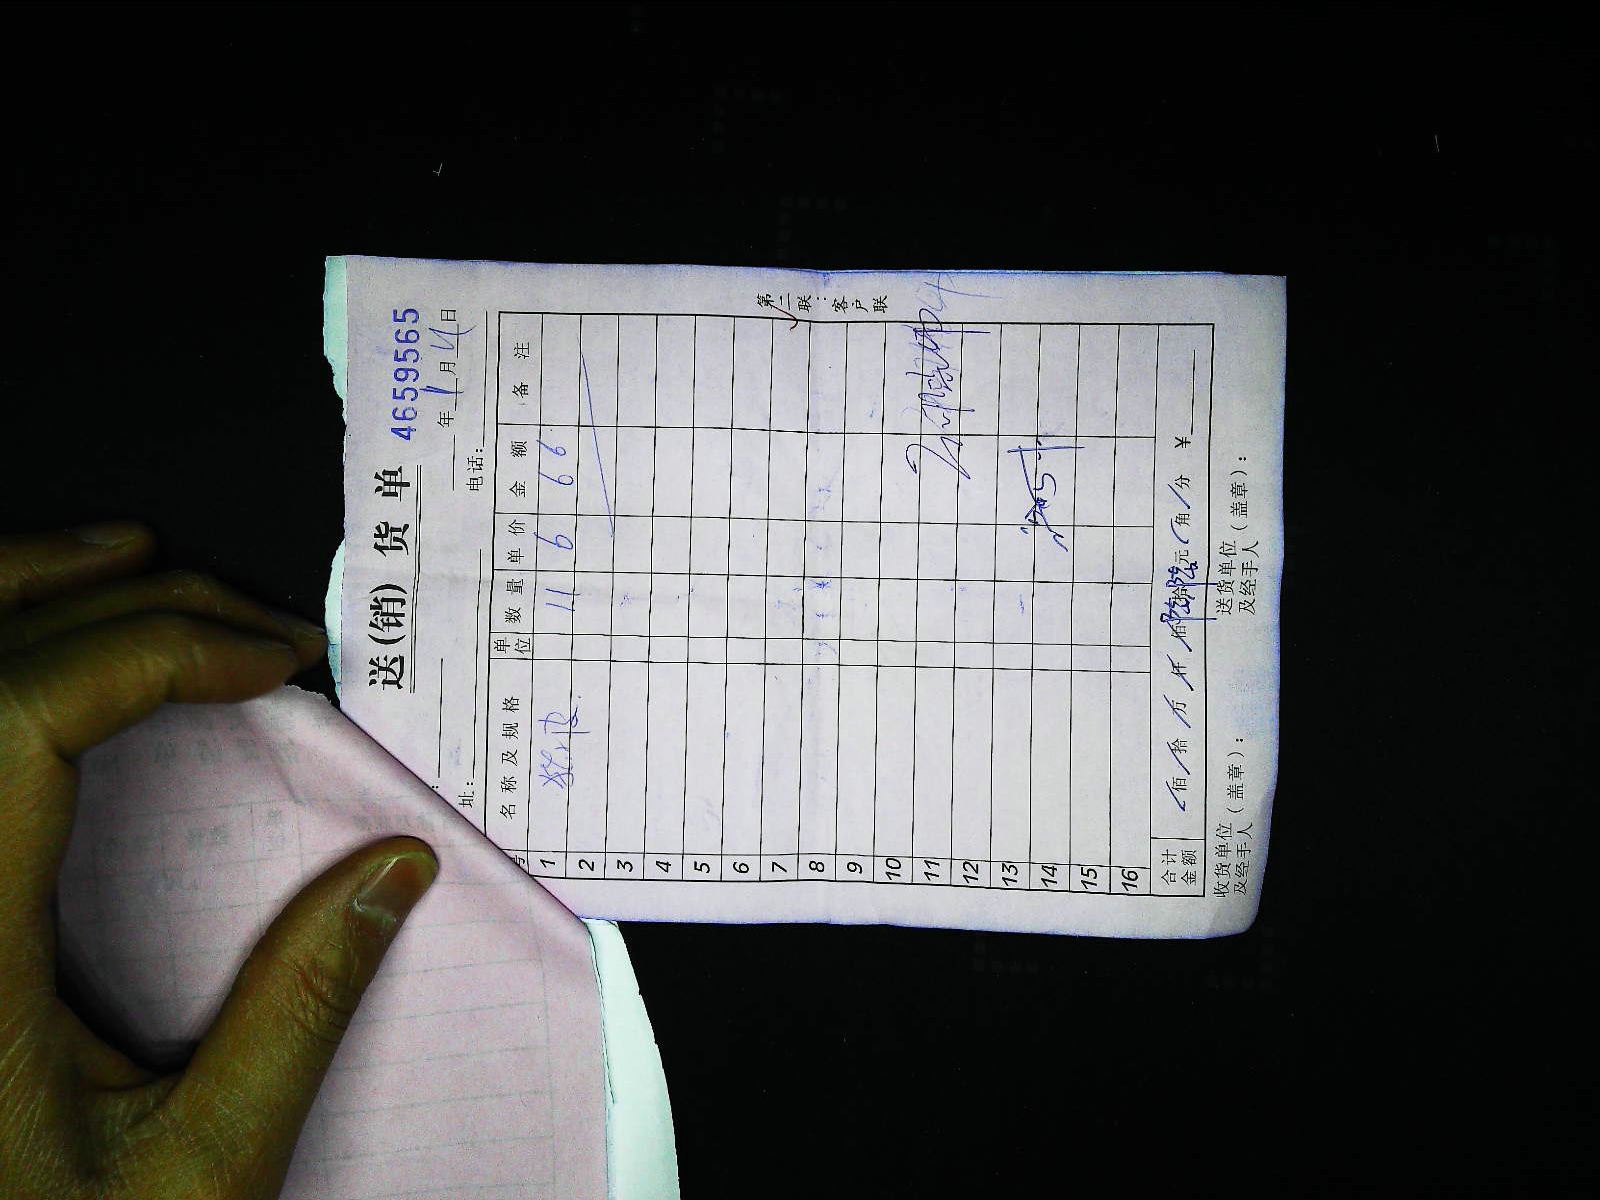 送(销) 货 单
4659565
年 1 月 4 日
:
址: 电话:
号 名称及规格 单位 数量 单价 金额 备注
1 11 6 66
2
3
4
5
6
7
8
9
10
11
12
13
14
15
16
合计金额 佰 拾 万 仟 佰 拾 元 角 分 ¥
收货单位及经手人(盖章): 送货单位及经手人(盖章):
第二联:客户联